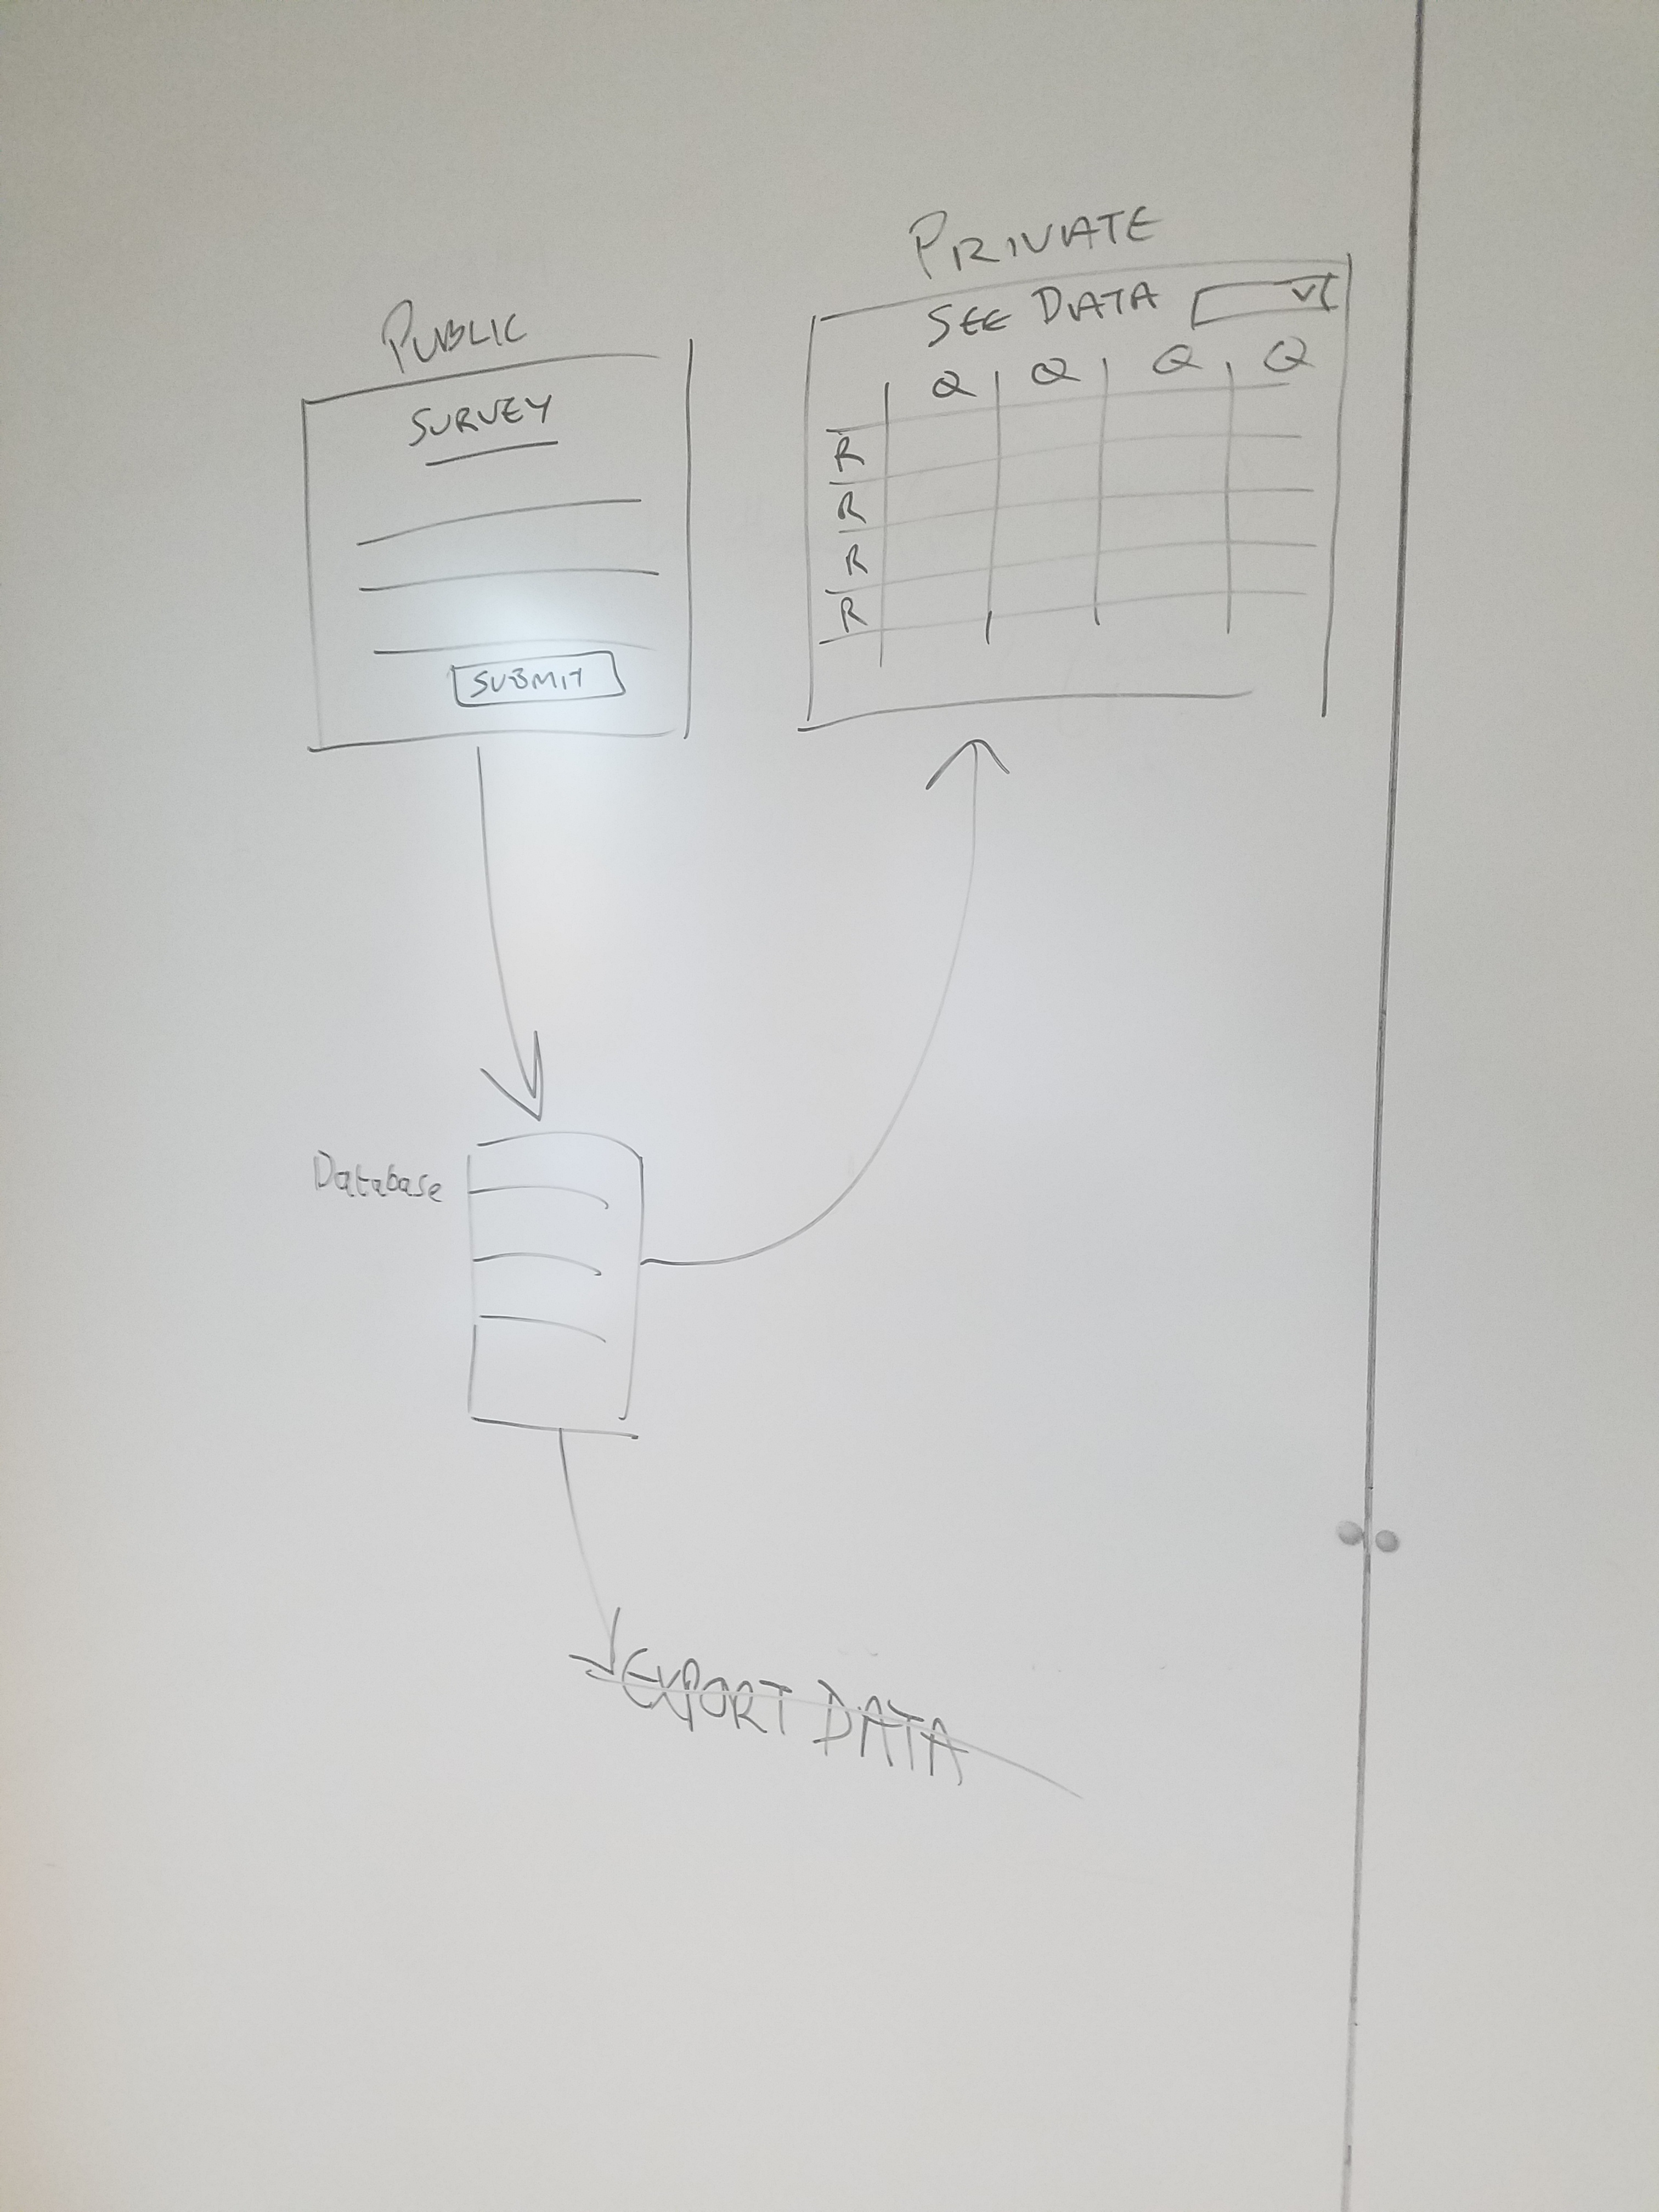 PUBLIC
SURVEY
SUBMIT
PRIVATE
SEE DATA
Q Q Q Q
R
R
R
R
Database
EXPORT DATA